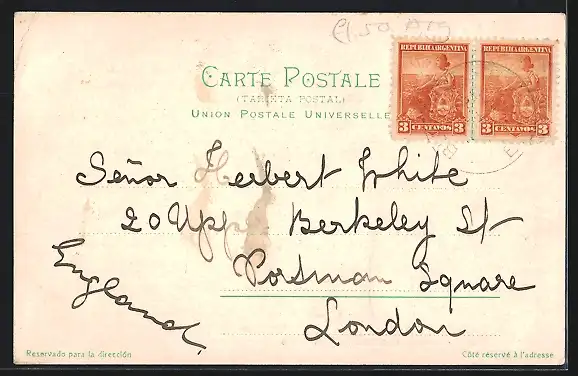 €1.50 Arg
REPUBLICA ARGENTINA REPUBLICA ARGENTINA
CARTE POSTALE
(TARJETA POSTAL)
UNION POSTALE UNIVERSELLE
3 CENTAVOS 3 3 CENTAVOS 3
Señor Herbert White
20 Upp. Berkeley St
Portman Square
London
England.
Reservado para la dirección
Côté réservé à l'adresse